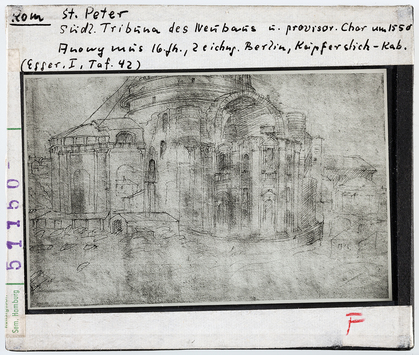 Rom St. Peter
Südl. Tribuna des Neubaus u. provisor. Chor um 1550
Anonymus 16. Jh., Zeichng. Berlin, Kupferstich-Kab.
(Egger, I, Taf. 42)
51150
Sem. Hamburg
F